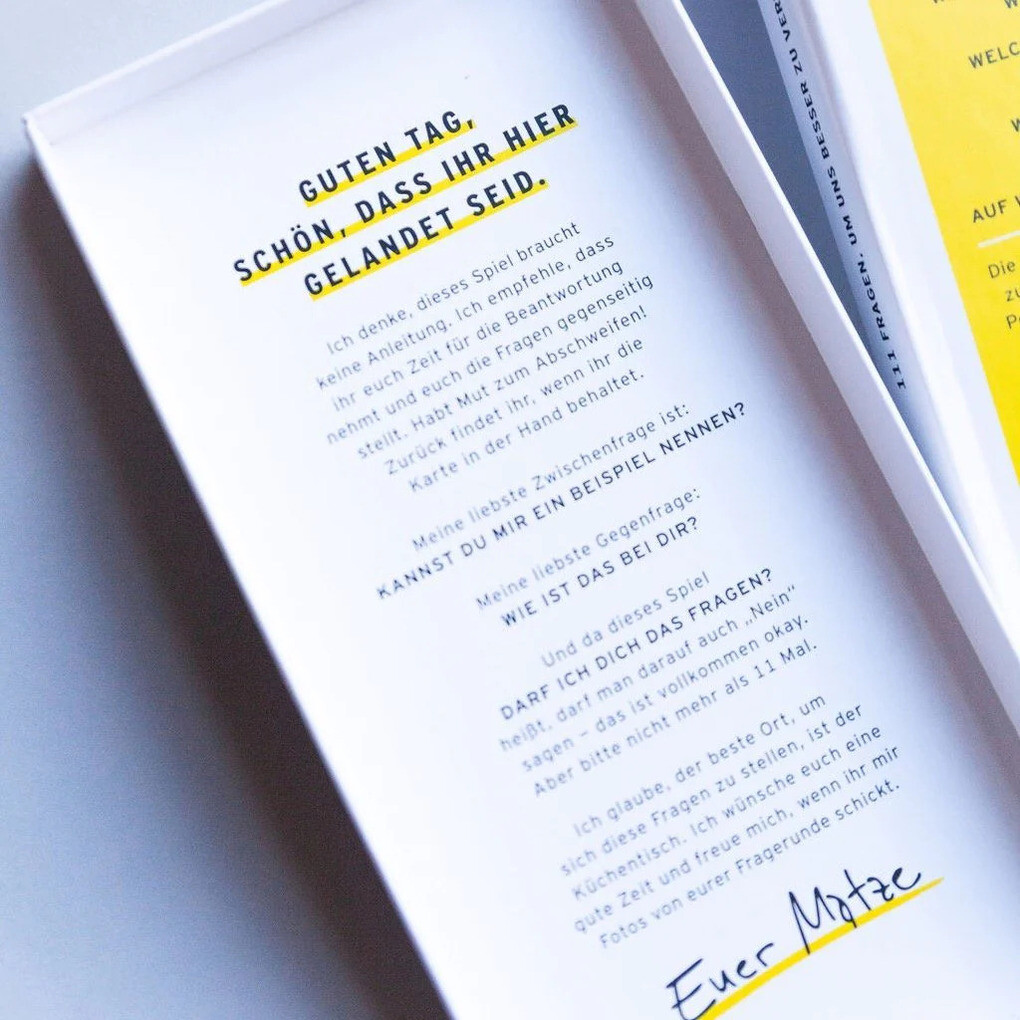 GUTEN TAG,
SCHÖN, DASS IHR HIER
GELANDET SEID.
Ich denke, dieses Spiel braucht
keine Anleitung. Ich empfehle, dass
ihr euch Zeit für die Beantwortung
nehmt und euch die Fragen gegenseitig
stellt. Habt Mut zum Abschweifen!
Zurück findet ihr, wenn ihr die
Karte in der Hand behaltet.
Meine liebste Zwischenfrage ist:
KANNST DU MIR EIN BEISPIEL NENNEN?
Meine liebste Gegenfrage:
WIE IST DAS BEI DIR?
Und da dieses Spiel
DARF ICH DICH DAS FRAGEN?
heißt, darf man darauf auch „Nein“
sagen – das ist vollkommen okay.
Aber bitte nicht mehr als 11 Mal.
Ich glaube, der beste Ort, um
sich diese Fragen zu stellen, ist der
Küchentisch. Ich wünsche euch eine
gute Zeit und freue mich, wenn ihr mir
Fotos von eurer Fragerunde schickt.
Euer Matze
111 FRAGEN, UM UNS BESSER ZU VER
WELC
AUF
Die